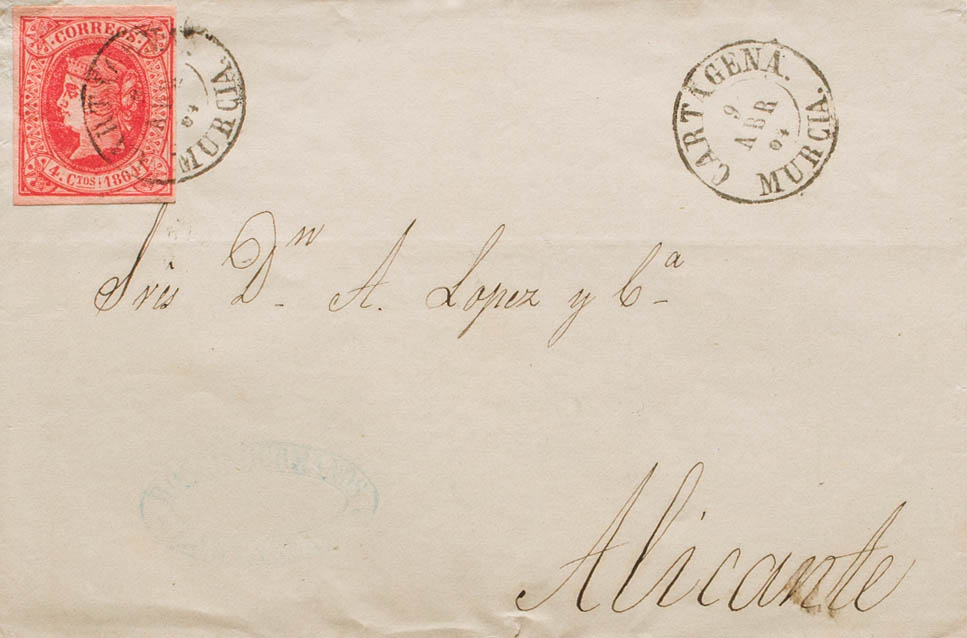 CORREOS
4. CTOS. 1864
MURCIA.
CARTAGENA.
9
ABR
64
MURCIA.
Sres Dn A. Lopez y Ca
Alicante